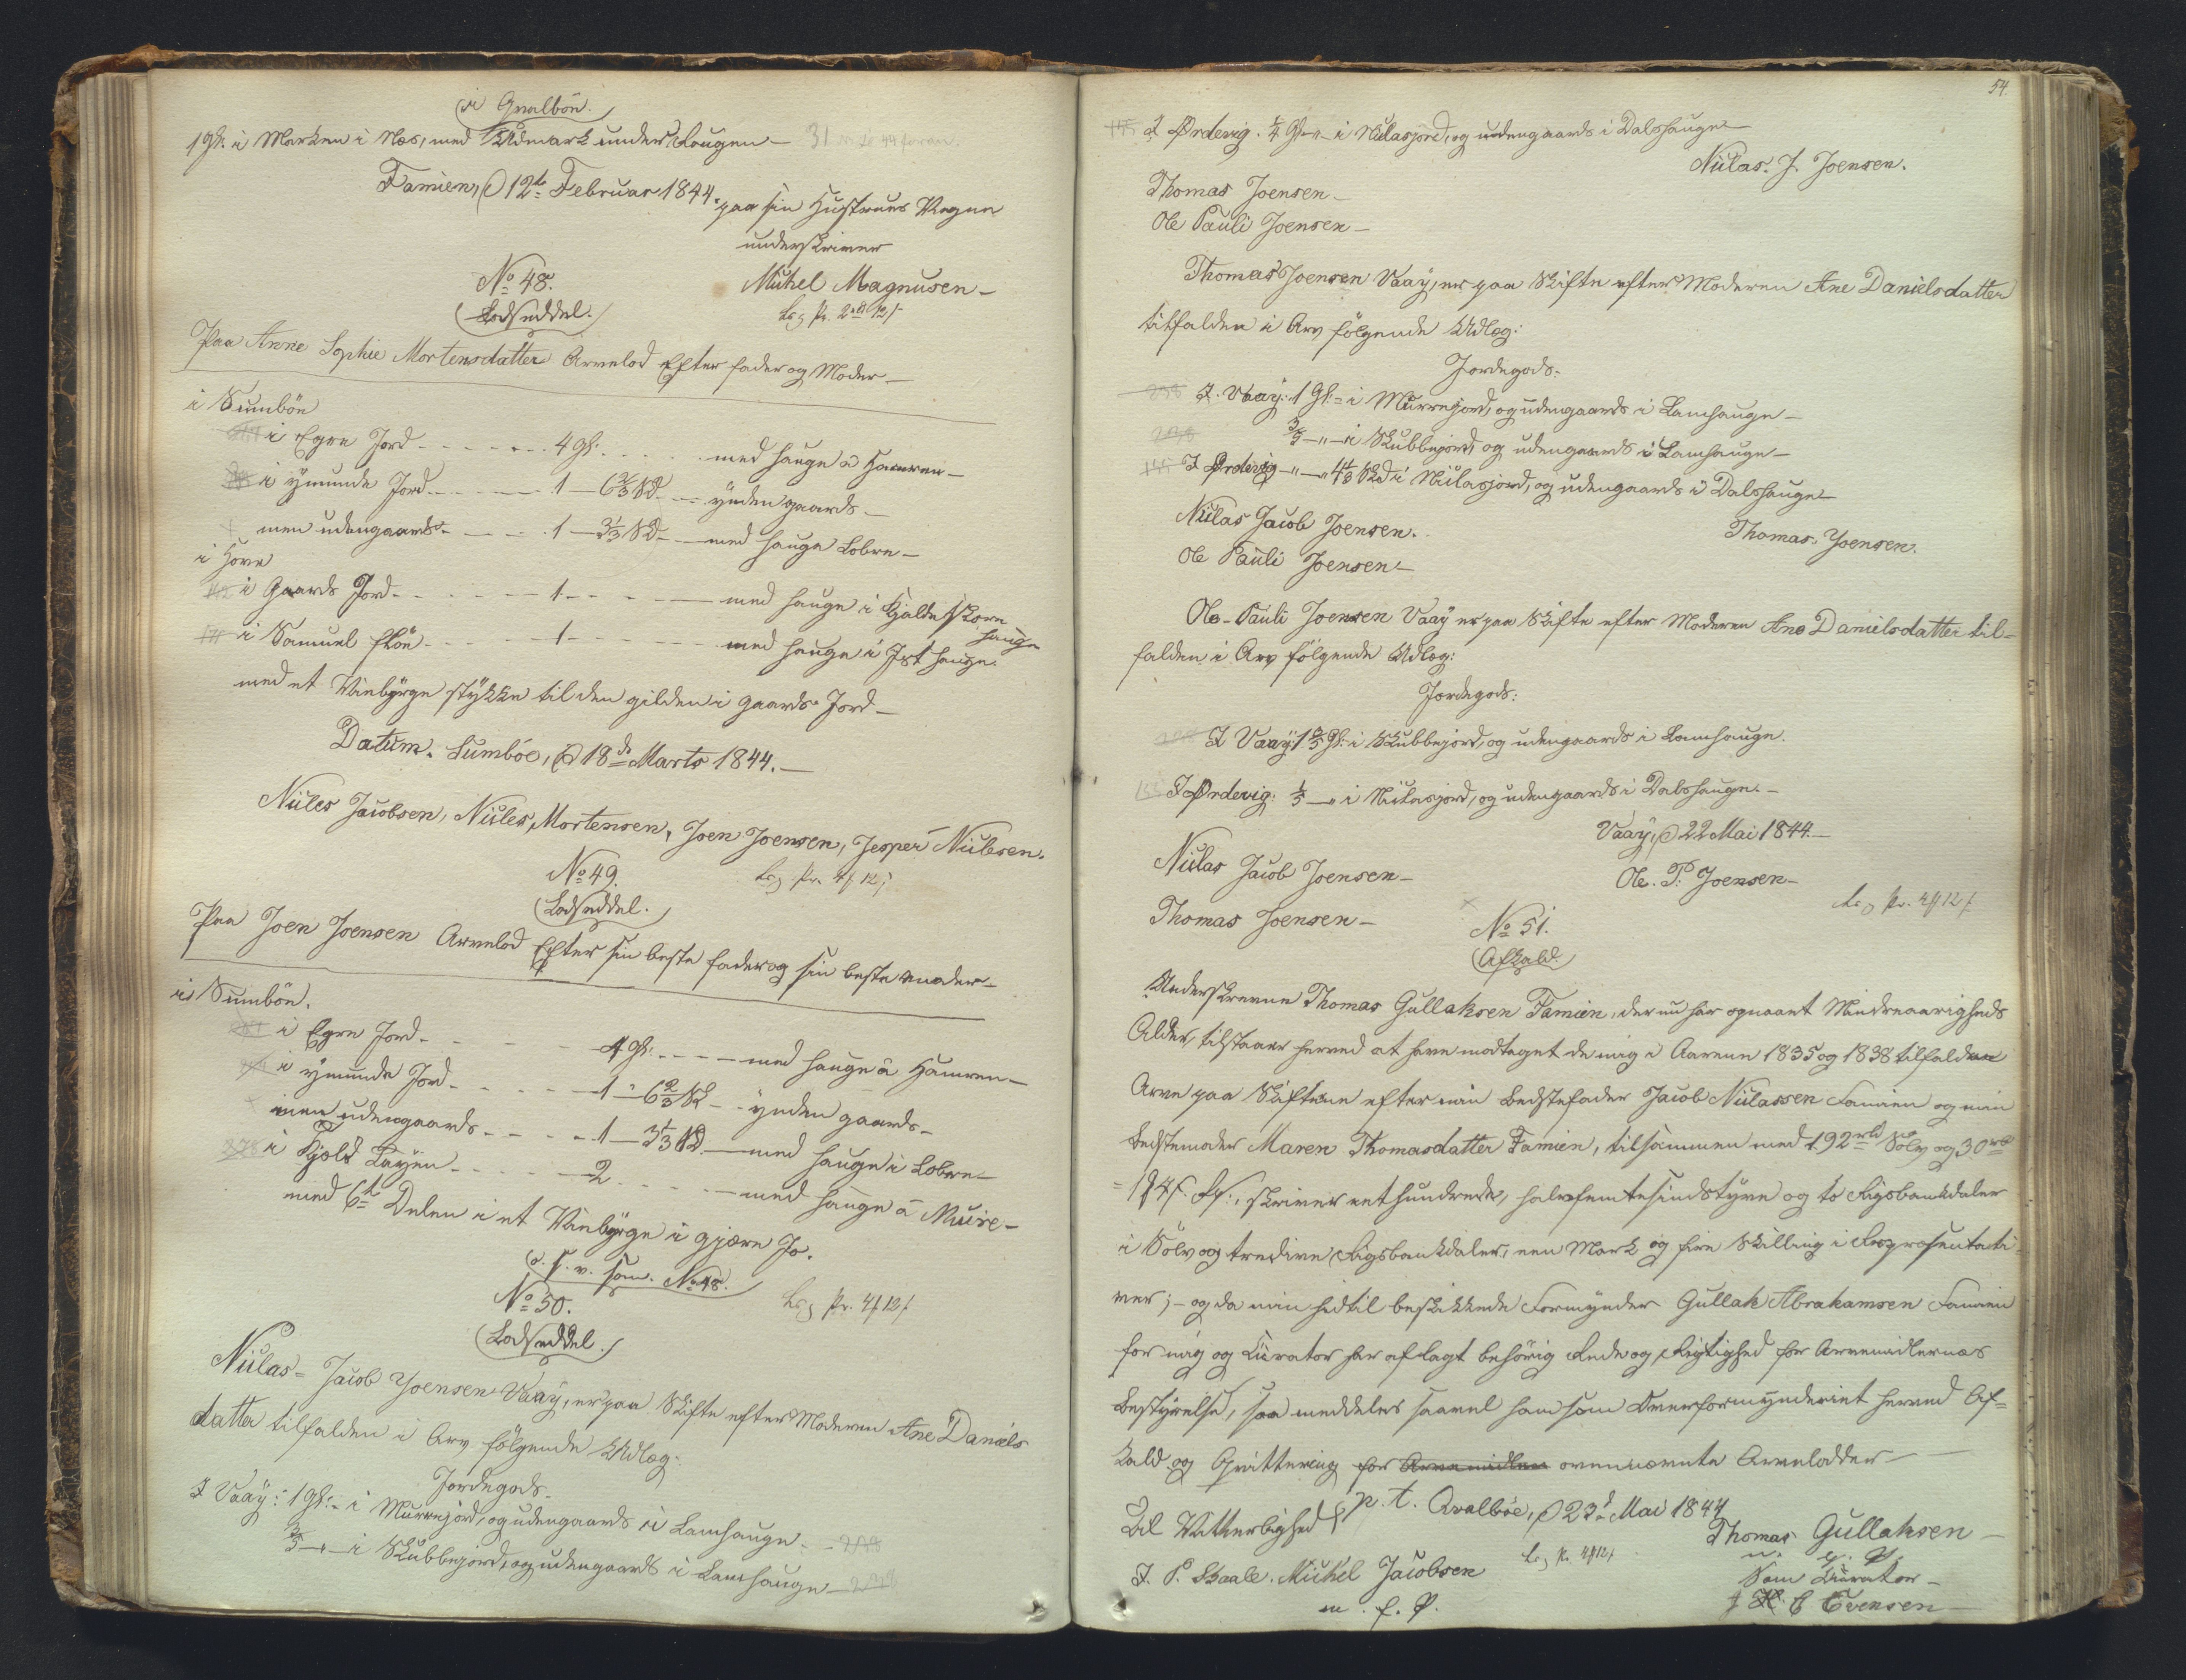 i Qvalböe.
1 Gl. i Marken i Næs, med Udmark under Haugen — 31
Famien, d 12te Februar 1844.
paa sin Hustrues Vegne
underskriver
No 48. Mikel Magnusen —
Lodseddel.
Paa Anne Sophie Mortensdatter Arvelod Efter fader og Moder —
i Sumböe
i Egre Jord - - - - 4 Gl. - - - med hauge a Hamren —
i ÿmunde Jord - - - - 1 — 6 2/3 Sk - - ÿnden gaards —
men udengaards - - - - 1 — 3 1/3 Sk - - med hauge Lobre —
i Hove
i Gaards Jord - - - - 1 - - - - med hauge i
hauge
i Samuel - - - - 1 - - - - med hauge i
med et Vinbÿrge stÿkke til den gilden i Gaards Jord —
Datum. Sumböe, d 18de Marts 1844. —
Niclas Jacobsen, Niclas Mortensen, Joen Joensen, Jesper Niclesen.
No 49.
Lodseddel.
Paa Joen Joensen Arvelod Efter sin beste fader og sin beste moder —
i Sumböe.
i Egre Jord - - - - 4 Gl. - - - med hauge a Hamren —
i ÿmunde Jord - - - - 1 - 6 2/3 Sk - - ÿnden gaards —
men udengaards - - - - 1 — 3 1/3 Sk — med hauge i Lobre —
i - - - - 2 - - - - med hauge a Mure —
med 6te Delen i et Vinbÿrge i
o. s. v. som No 48.
No 50.
Lodseddel.
Niclas = Jacob Joensen Vaaÿ, er paa Skifte efter Moderen Ane Daniels
datter tilfalden i Arv følgende Udlæg:
Jordegods.
I Vaaÿ: 1 Gl. i Murrejord, og udengaards i Lamhauge. — 238
3/5 — " — i Skubbejord, og udengaards i Lamhauge — 238
54.
I Ørdevig. 1/4 Gl. — i Niclasjord, og udengaards i Dalshauge —
Niclas. J. Joensen.
Thomas Joensen —
Ole Pauli Joensen —
Thomas Joensen Vaaÿ, er paa Skifte efter Moderen Ane Danielsdatter
tilfalden i Arv følgende Udlæg:
Jordegods:
238 I Vaaÿ: 1 Gl. i Murrejord, og udengaards i Lamhauge —
238 3/5 — " — i Skubbejord, og udengaards i Lamhauge —
I Ørdevig — " — i Niclasjord, og udengaards i Dalshauge —
Niclas Jacob Joensen.
Thomas. Joensen.
Ole Pauli Joensen —
Ole = Pauli Joensen Vaaÿ er paa Skifte efter Moderen Ane Danielsdatter til=
falden i Arv følgende Udlæg:
Jordegods:
I Vaaÿ 1 Gl. i Skubbejord, og udengaards i Lamhauge.
I Ørdevig: 1/5 — " i Niclasjord, og udengaards i Dalshauge. —
Vaaÿ, d 22 Mai 1844. —
Niclas Jacob Joensen —
Ole. P. Joensen —
Thomas Joensen —
No 51.
Afkald.
Underskrevne Thomas Gullaksen Famien, der nu har opnaaet Mindreaarigheds
Alder, tilstaaer herved at have modtaget de mig i Aarene 1835 og 1838 tilfaldne
Arve paa Skifterne efter min Bedstefader Jacob Niclassen Famien og min
Bedstemoder Maren Thomasdatter Famien, tilsammen med 192 rbd Sølv og 30 rbd
1 Mk 4 s. skriver eet hundrede, halvfemtesindstÿve og to Rigsbankdaler
i Sølv og tredive Rigsbankdaler, een Mark og fire Skilling i Repræsentati
ver; — og da min hidtil beskikkede Formÿnder Gullak Abrahamsen Famien
for mig og Curator har aflagt behørig Rede og Rigtighed for Arvemidlernes
Bestÿrelse, saa meddeles saavel ham som Overformÿnderiet herved Af=
kald og Qvittering for Arvemidlen ovennævnte Arvelodder —
p. t. Qvalböe, d 23d Mai 1844
Til Vitterlighed
Thomas Gullaksen —
m. f. P.
J. P. Skaale. Mikkel Jacobsen
m. f. P.
Som Curator —
Evensen —